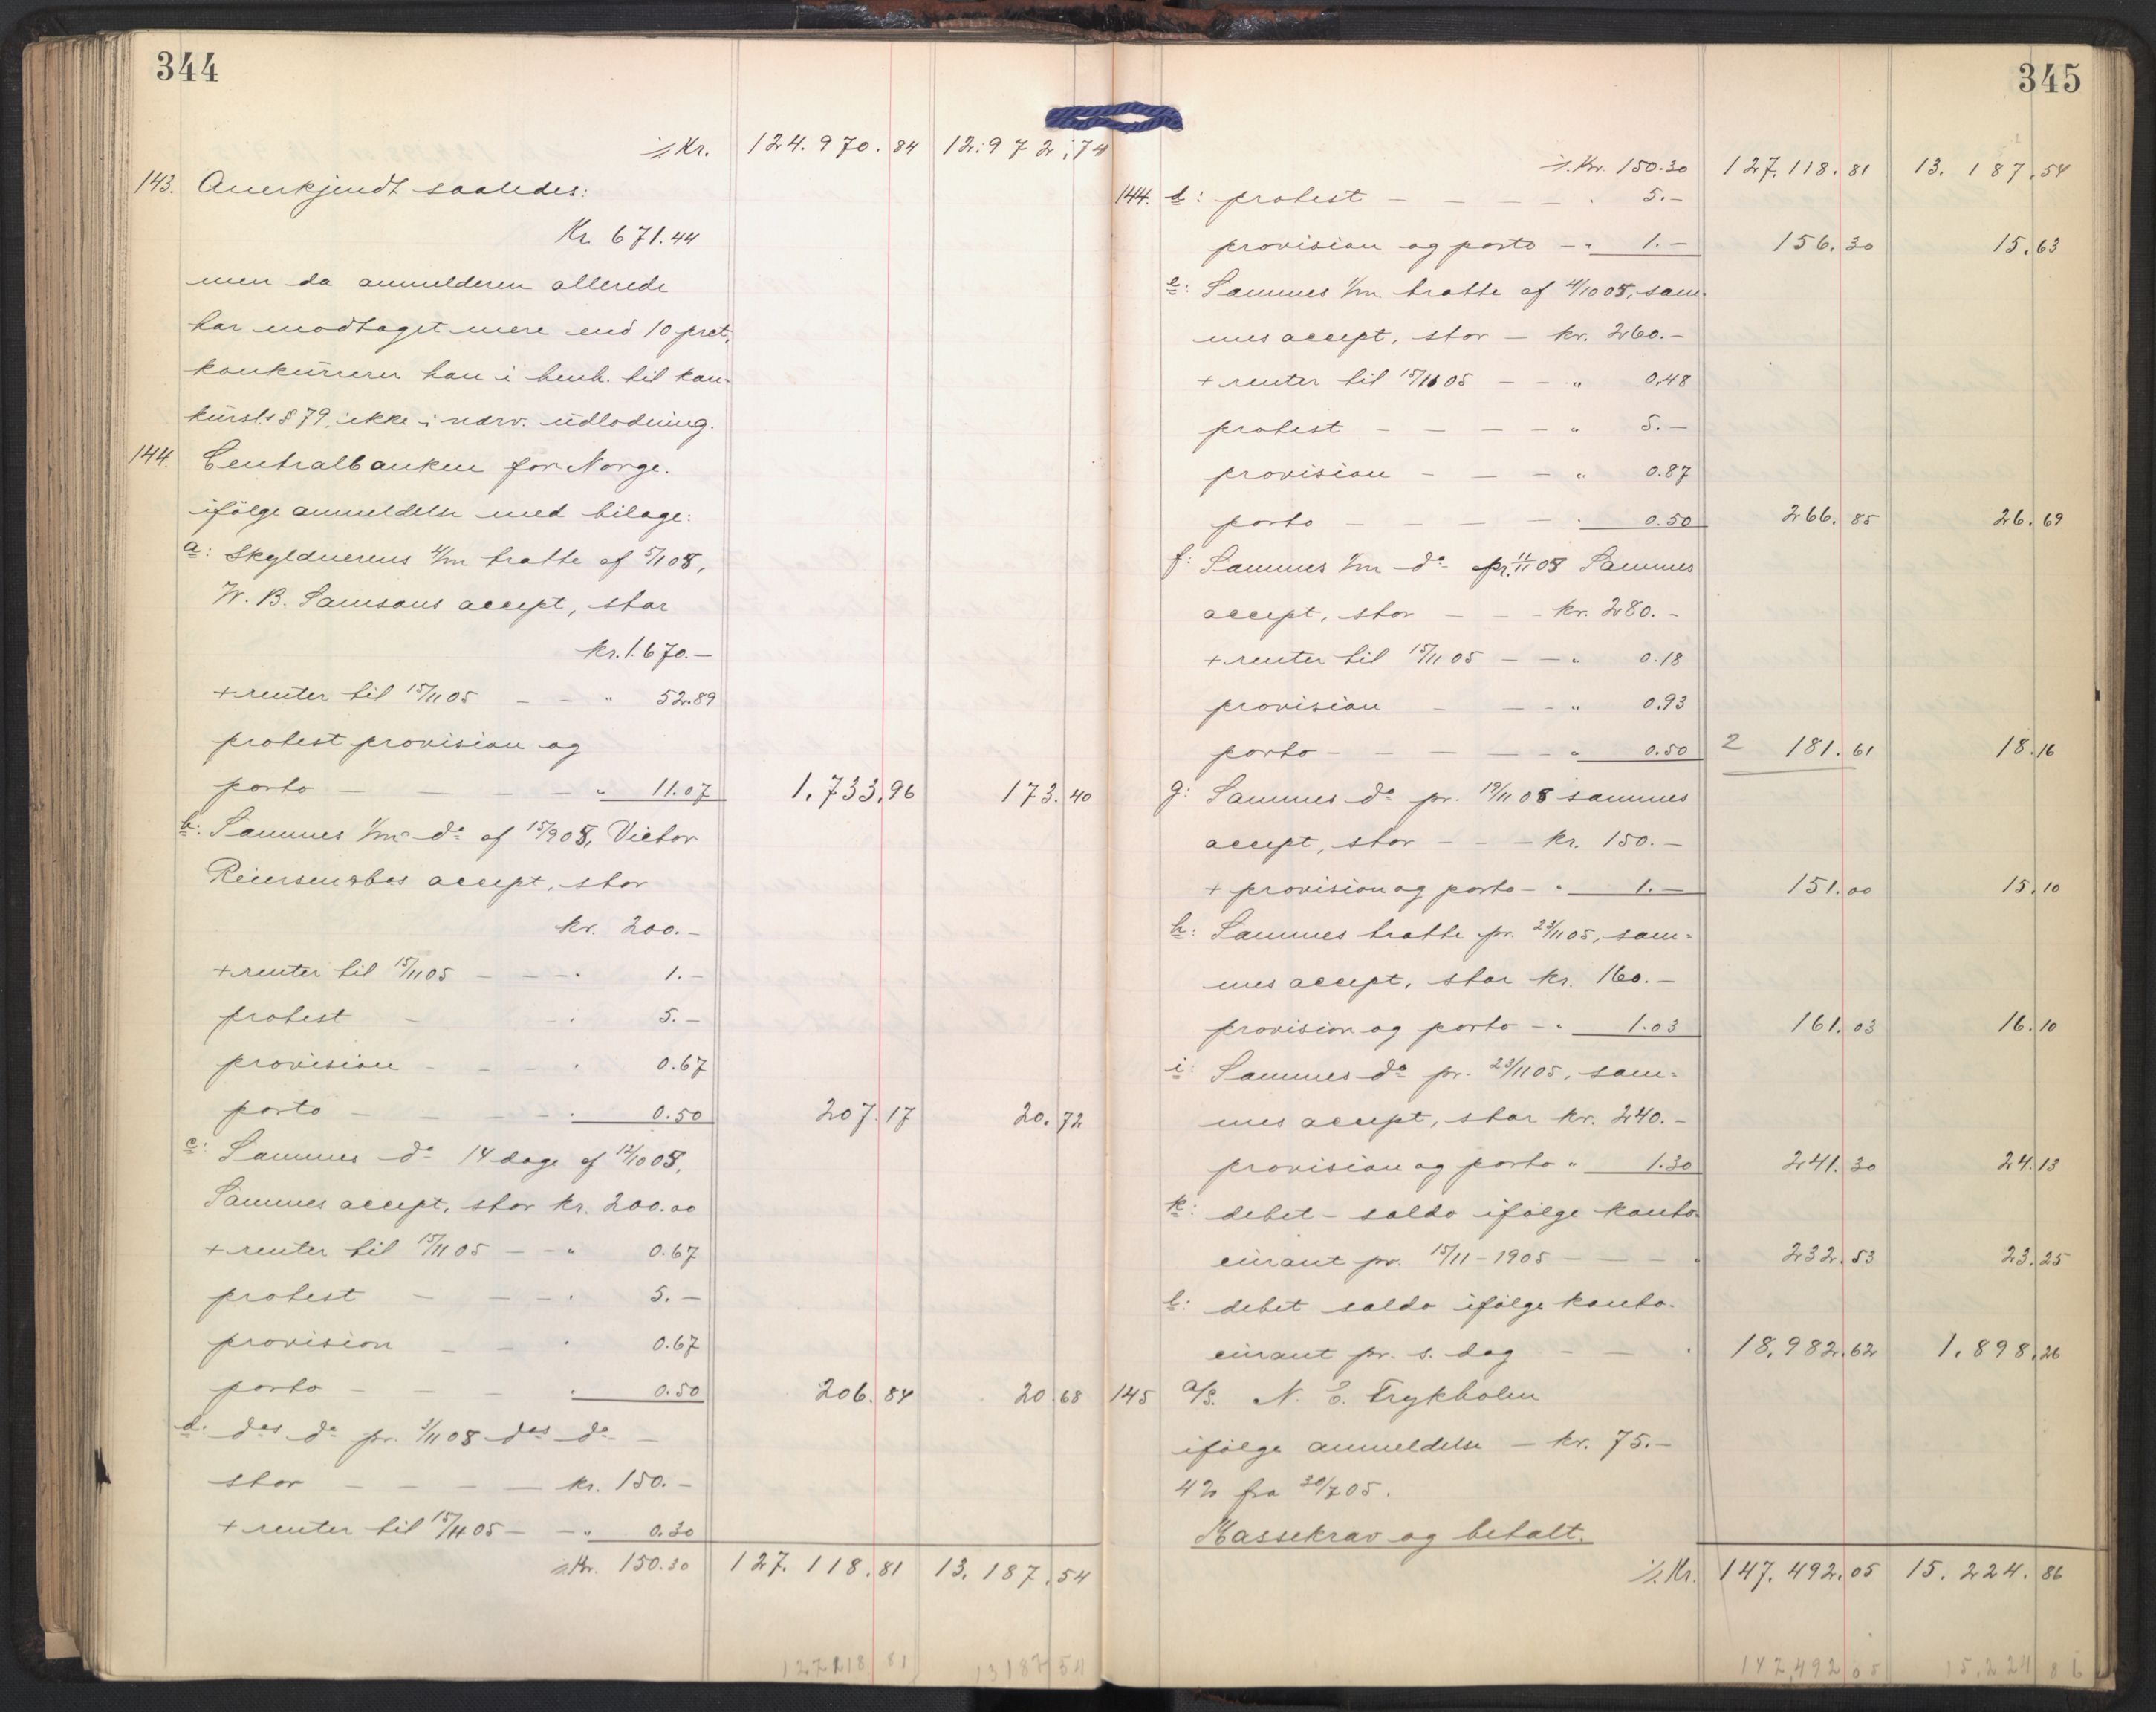 344
⁒ Kr. 124.970.84 12.972.74
143. Anerkjendt saaledes:
Kr. 671.44
men da anmelderen allerede
har modtaget mere end 10 pret,
konkurrerer han i henh. til kon-
kursl. § 79, ikke i nærv. udlodning.
144. Centralbanken for Norge.
ifölge anmeldelse med bilage:
a: Skyldnerens 4/m tratte af 5/1 05,
W. B. Samsons accept, stor
kr. 1.670.—
+ renter til 15/11 05 — — " 52.89
protest provision og
porto — — — — " 11.07 1,733.96 173.40
b: Sammes 1/m do af 15/9 05, Victor
Reiersens accept, stor
kr. 200.—
+ renter til 15/11 05 — — — " 1.—
protest — — " 5.—
provision — — — " 0.67
porto — — — — " 0.50 207.17 20.72
c: Sammes do 14 dage af 12/10 05,
Sammes accept, stor kr. 200.00
+ renter til 15/11 05 — — " 0.67
protest — — — " 5.—
provision — — " 0.67
porto — — — " 0.50 206.84 20.68
d: des do pr. 3/11 05 des do —
stor — — — — kr. 150.—
+ renter til 15/11 05 — — " 0.30
⁒ Kr. 150.30 127.118.81 13.187.54
127118 81 13187 54
345
⁒ Kr. 150.30 127.118.81 13.187.54
144. d: protest — — — — " 5.—
provision og porto — " 1.— 156.30 15.63
e: Sammes 1/m tratte af 4/10 05, sam-
mes accept, stor — kr. 260.—
+ renter til 15/11 05 — — " 0.48
protest — — — — " 5.—
provision — — — " 0.87
porto — — — — " 0.50 266.85 26.69
f: Sammes 1/m do pr. 11/11 05 Sammes
accept, stor — — — kr. 280.—
+ renter til 15/11 05 — — " 0.18
provision — — — " 0.93
porto — — — — — " 0.50 2 181.61 18.16
g: Sammes do pr. 19/11 05 sammes
accept, stor — — — kr. 150.—
+ provision og porto — " 1.— 151.00 15.10
h: Sammes tratte pr. 23/11 05, sam-
mes accept, stor kr. 160.—
provision og porto — " 1.03 161.03 16.10
i: Sammes do pr. 23/11 05, sam-
mes accept, stor kr. 240.—
provision og porto " 1.30 241.30 24.13
k: debet - saldo ifölge konto-
curant pr. 15/11 - 1905 — — — " 232.53 23.25
l: debet saldo ifölge konto-
curant pr. s. dag — — " 18.982.62 1.898.26
145 a/s. N. E. Trykholm
ifölge anmeldelse — kr. 75.—
4% fra 30/7 05.
Massekrav og betalt.
⁒ Kr. 147.492.05 15.224.86
147,492 05 15.224 86